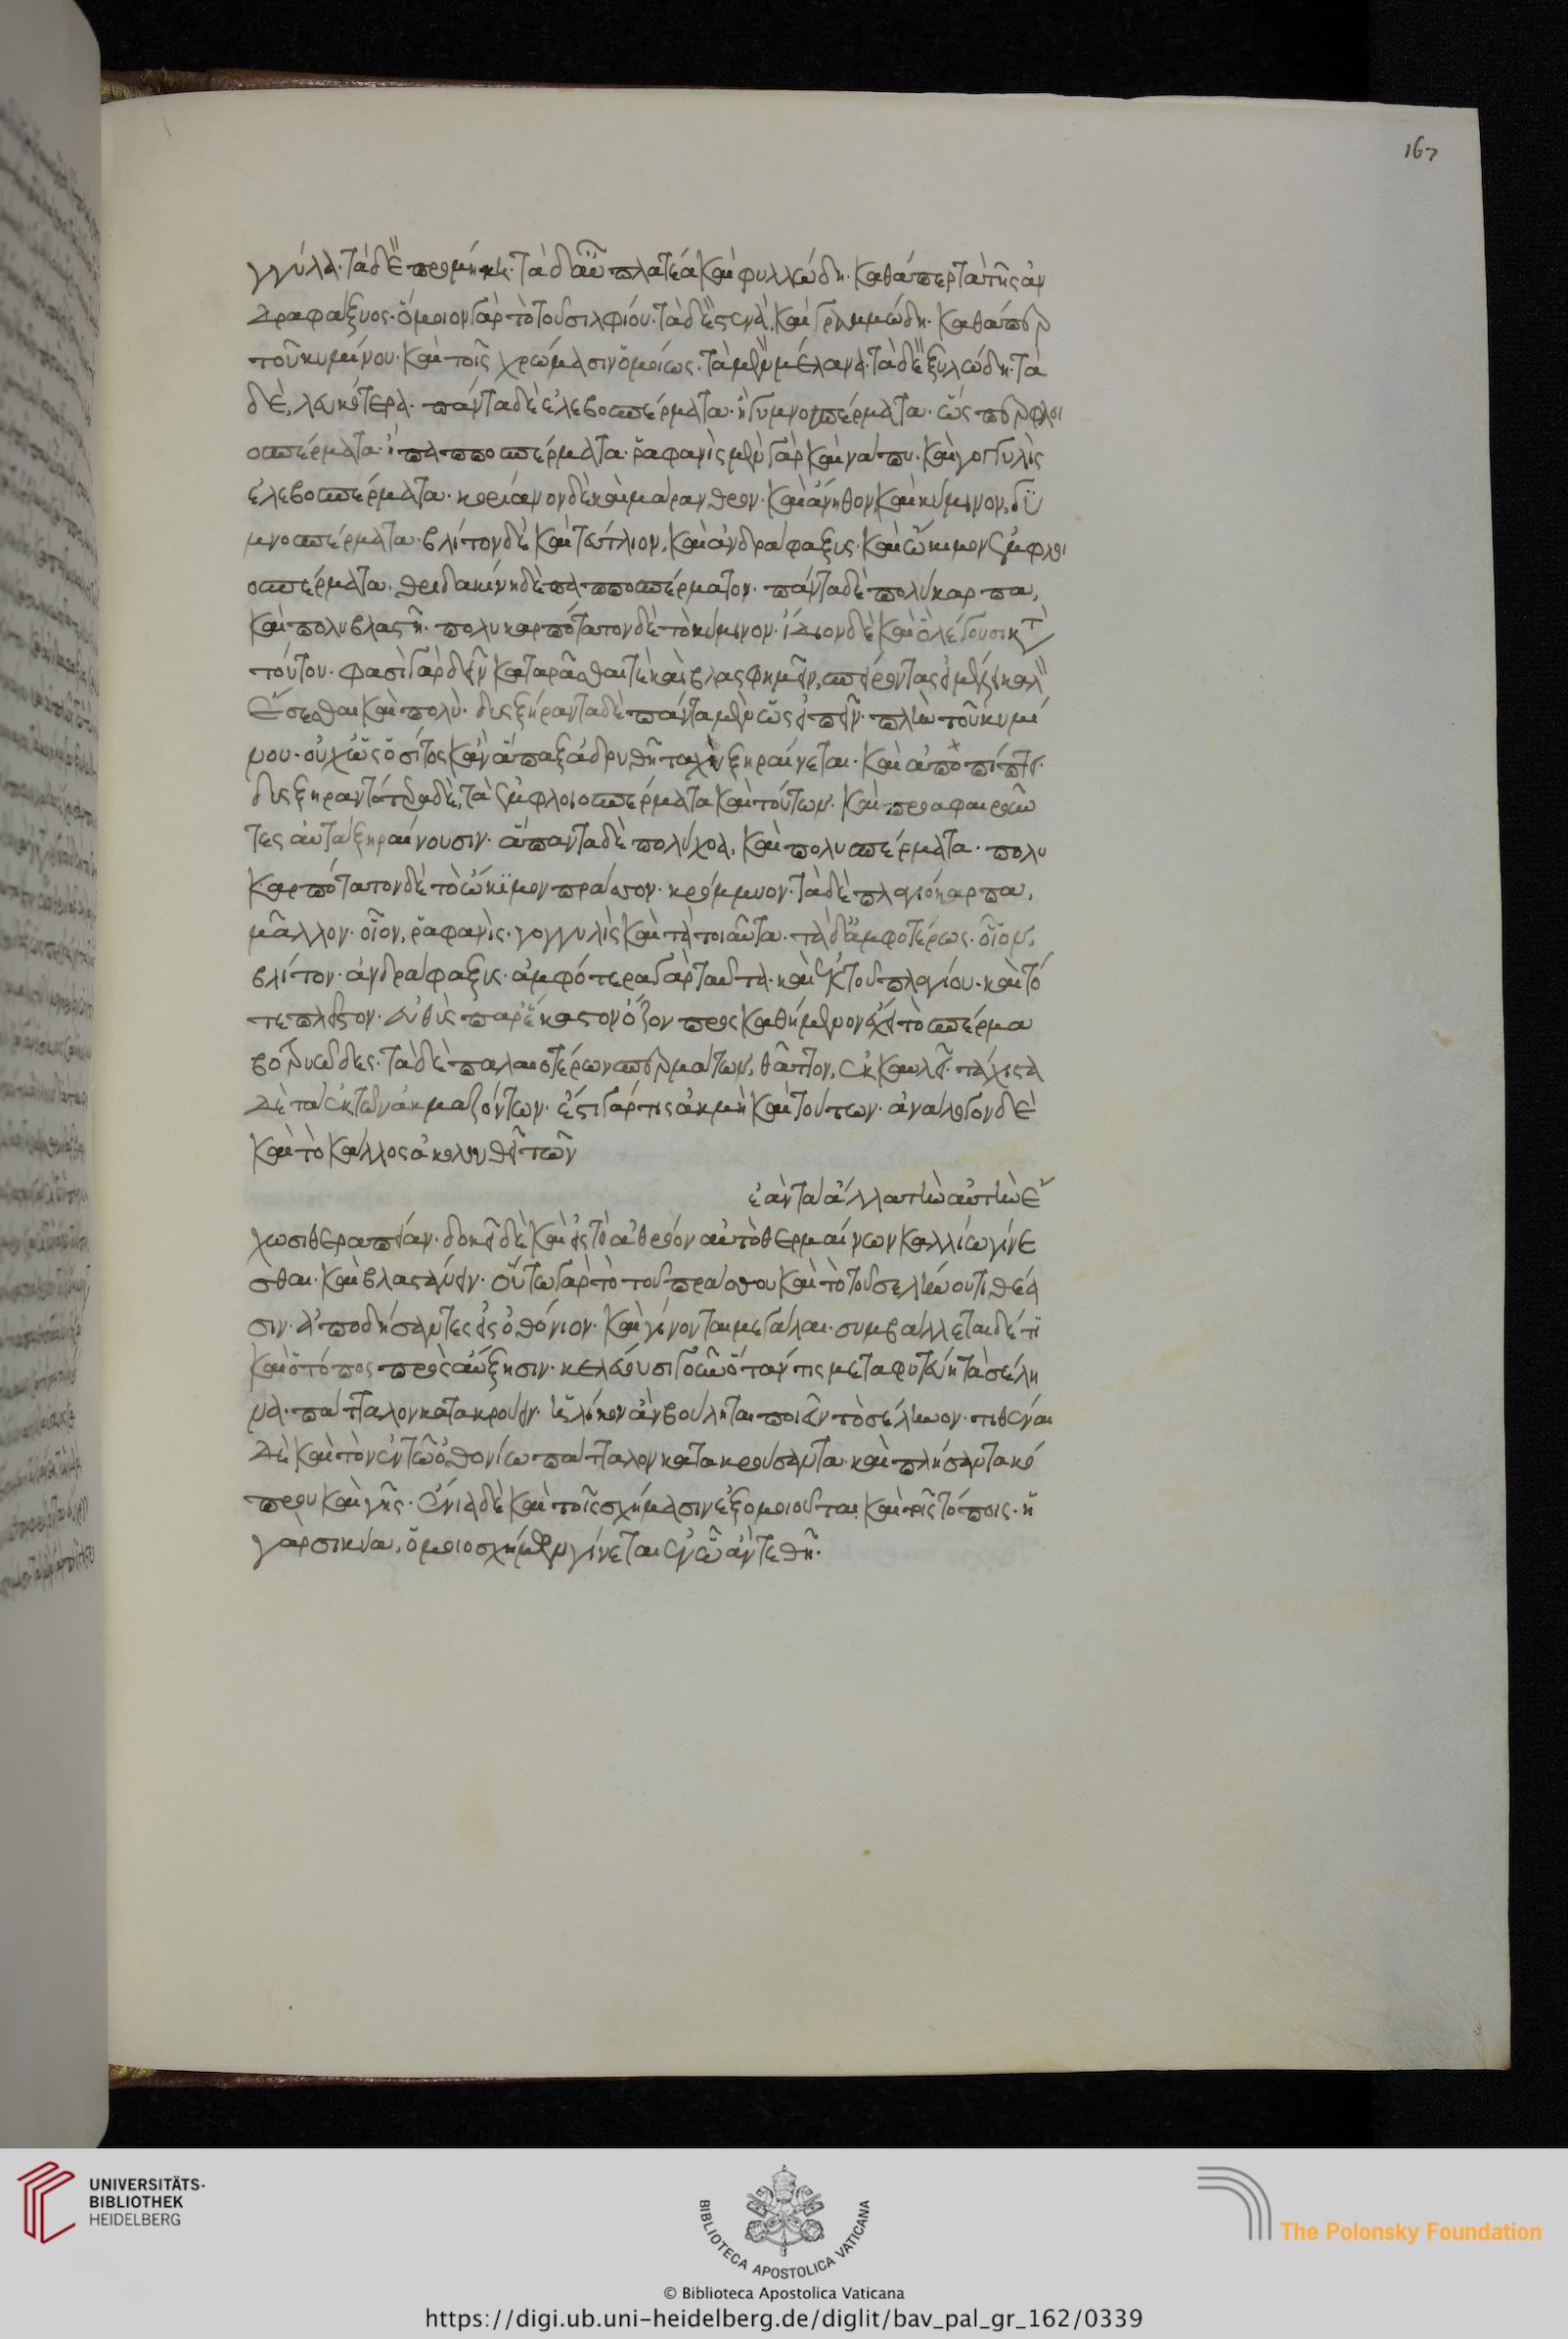 167
γγύλα· τὰ δὲ προμήκη· τὰ δ αὖ πλατέα καὶ φυλλώδη· καθάπερ τὰ τῆς ἀν
δραφάξυος· ὅμοιον γὰρ τὸ τοῦ σιλφίου· τὰ δὲ στενὰ, καὶ γραμμώδη· καθάπερ
τοῦ κυμίνου· καὶ τοῖς χρώμασιν ὁμοίως· τὰ μὲν μέλανα· τὰ δὲ ξυλώδη· τὰ
δὲ, λευκότερα· πάντα δὲ ἐλεβοσπέρματα· ἢ γυμνοσπέρματα· ὥσπερ φλοι
οσπέρματα· ἢ παπποσπέρματα· ῥαφανὶς μὲν γὰρ καὶ νάπυ· καὶ γογγυλὶς
ἐλεβοσπέρματα· κορίανον δὲ καὶ μάρανθρον· καὶ ἄνηθον, καὶ κύμινον, γυ
μνοσπέρματα· βλίτον δὲ καὶ τευτλίον, καὶ ἀνδράφαξυς· καὶ ὤκιμον ἐμφλοι
οσπέρματα· θριδακίνη δὲ παπποσπέρματον· πάντα δὲ πολύκαρπα,
καὶ πολυβλαστῆ· πολυκαρπότατον δὲ τὸ κύμινον· ἴδιον δὲ καὶ ὃ λέγουσι κατὰ
τούτου· φασὶ γὰρ δεῖν καταρᾶσθαί τε καὶ βλασφημεῖν, σπείροντας εἰ μέλλει καλὸν
ἔσεσθαι καὶ πολὺ· δυσξήραντα δὲ πάντα μὲν ὡς εἰπεῖν· πλὴν τοῦ κυμί
νου· οὐχ ὡς ὁ σῖτος κἂν ἅπαξ ἁδρυνθῆ ταχὺ ξηραίνεται· καὶ ἀποπίπτει·
δυσξηραντότερα δὲ, τὰ ἐμφλοιοσπέρματα καὶ τούτων· καὶ προαφαιροῦν
τες αὐτὰ ξηραίνουσιν· ἅπαντα δὲ πολύχοα, καὶ πολυσπέρματα· πολυ
καρπότατον δὲ τὸ ὤκιμον πράσον· κρόμμυον· τὰ δὲ πλαγιόκαρπα,
μᾶλλον· οἷον, ῥαφανὶς· γογγυλὶς καὶ τὰ τοιαῦτα· τὰ δ ἀμφοτέρως· οἷον,
βλίτον· ἀνδράφαξυς· ἀμφότερα γὰρ ταῦτα· καὶ ἐκ τοῦ πλαγίου· καὶ τό
τε πλεῖστον· εὐθὺς παρ ἕκαστον ὄζον προσκαθήμενον ἔχει τὸ σπέρμα
βοτρυῶδες· τὰ δὲ παλαιοτέρων σπερμάτων, θᾶττον, ἐκκαυλεῖ· τάχιστα
δὲ τὰ ἐκ τῶν ἀκμαζόντων· ἔστι γάρ τις ἀκμὴ καὶ τούτων· ἀνάλογον δὲ
καὶ τὸ κάλλος ἀκολουθεῖ τῶν
ἐὰν τἆλλα τὴν αὐτὴν ἔ
χωσι θεραπείαν· δοκεῖ δὲ καὶ εἰς τὸ ἀθρόον αὐτὸ θερμαίνων καλλίω γίνε
σθαι· καὶ βλαστάνειν· οὕτω γὰρ τὸ τοῦ πράσου καὶ τὸ τοῦ σελίνου τιθέα
σιν· ἀποδήσαντες εἰς ὀθόνιον· καὶ γίνονται μεγάλαι· συμβάλλεται δέ τι
καὶ ὁ τόπος πρὸς αὔξησιν· κελεύουσι γοῦν ὅταν τις μεταφυτεύη τὰ σέλι
να· πάτταλον κατακρούειν· ἡλίκον ἂν βούληται ποιεῖν τὸ σέλινον· τιθέναι
δὲ καὶ τὸν ἐν τῶ ὀθονίω πάτταλον κατακρούσαντα· καὶ πλήσαντα κό
πρου καὶ γῆς· ἔνια δὲ καὶ τοῖς σχήμασιν ἐξομοιοῦται, καὶ τοῖς τόποις· ἡ
γὰρ σικύα, ὁμοιοσχήμων γίνεται ἐν ὧ ἂν τεθῆ·
UNIVERSITÄTS-
BIBLIOTHEK
HEIDELBERG
BIBLIOTECA APOSTOLICA VATICANA
The Polonsky Foundation
© Biblioteca Apostolica Vaticana
https://digi.ub.uni-heidelberg.de/diglit/bav_pal_gr_162/0339